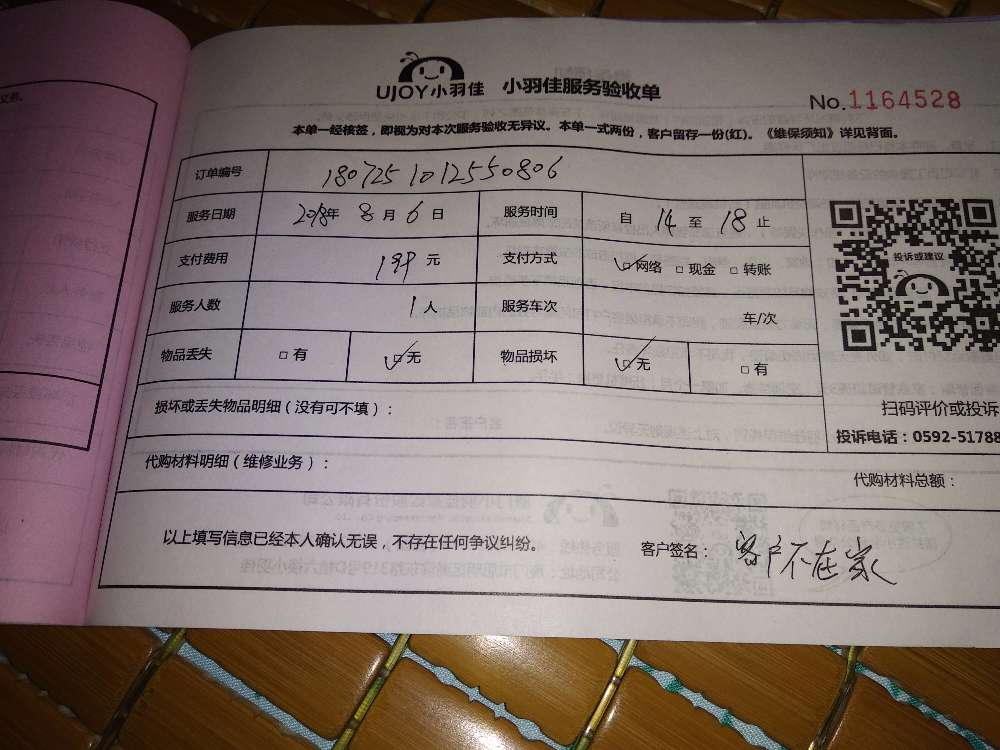 UJOY小羽佳 小羽佳服务验收单
No.1164528
本单一经核签，即视为对本次服务验收无异议。本单一式两份，客户留存一份(红)。《维保须知》详见背面。
订单编号 1807251012550806
服务日期 2018年 8月 6日 服务时间 自 14 至 18 止
支付费用 199元 支付方式 ☑网络 □现金 □转账
投诉或建议
服务人数 1人 服务车次 车/次
物品丢失 □有 ☑无 物品损坏 ☑无 □有
损坏或丢失物品明细（没有可不填）：
扫码评价或投诉
投诉电话：0592-51788
代购材料明细（维修业务）：
代购材料总额：
以上填写信息已经本人确认无误，不存在任何争议纠纷。
客户签名：客户不在家